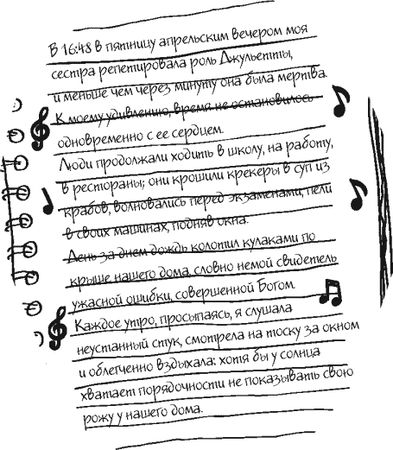 В 16:48 в пятницу апрельским вечером моя
сестра репетировала роль Джульетты,
и меньше чем через минуту она была мертва.
К моему удивлению, время не остановилось
одновременно с ее сердцем.
Люди продолжали ходить в школу, на работу,
в рестораны; они крошили крекеры в суп из
крабов, волновались перед экзаменами, пели
в своих машинах, подняв окна.
День за днем дождь колотил кулаками по
крыше нашего дома, словно немой свидетель
ужасной ошибки, совершенной Богом.
Каждое утро, просыпаясь, я слушала
неустанный стук, смотрела на тоску за окном
и облегченно вздыхала: хотя бы у солнца
хватает порядочности не показывать свою
рожу у нашего дома.